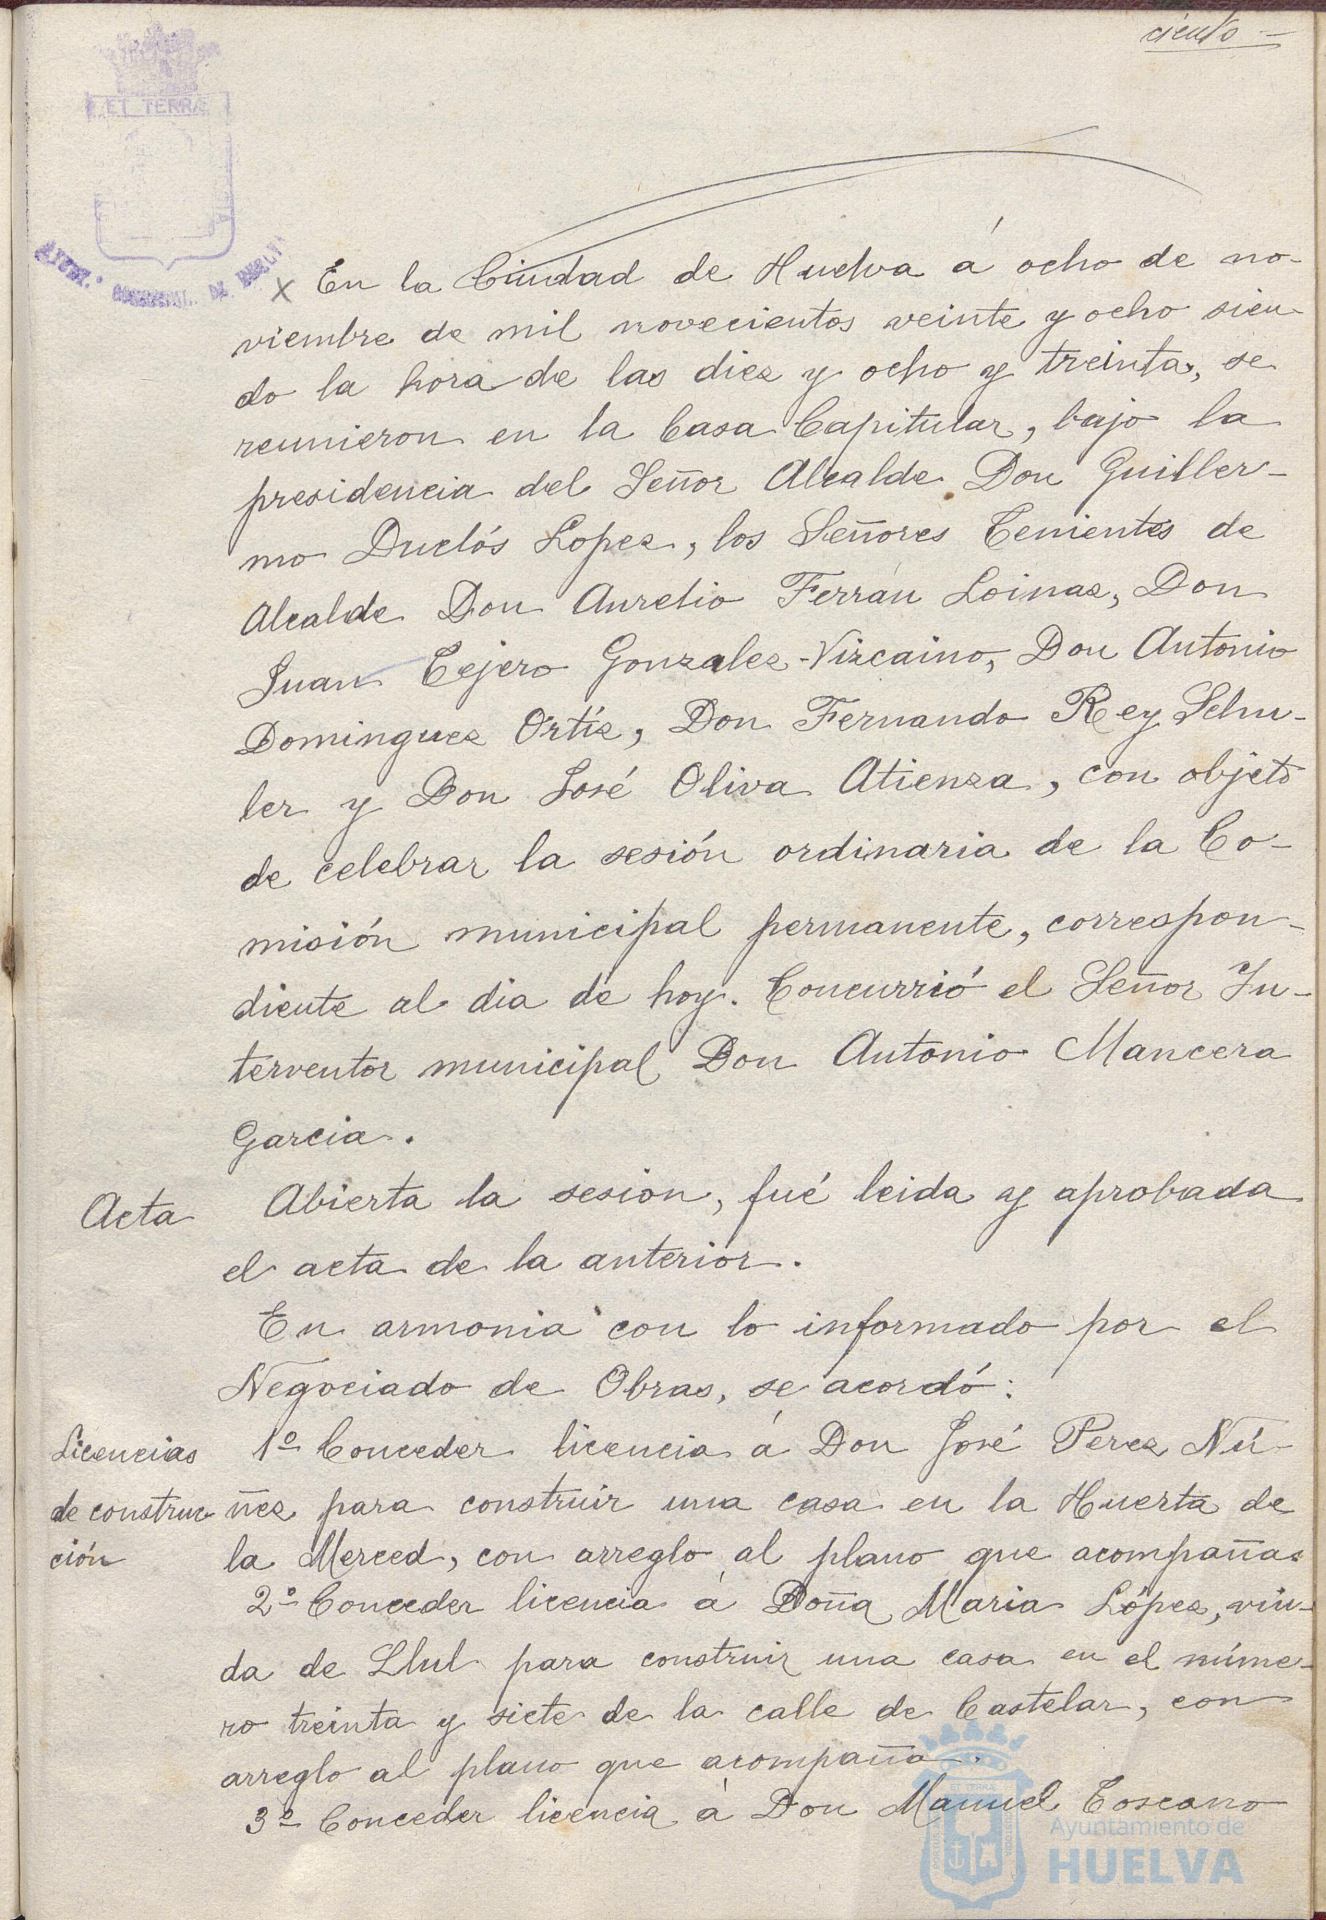 ciento
ET TERRÆ
En la Ciudad de Huelva á ocho de no-
viembre de mil novecientos veinte y ocho sien-
do la hora de las diez y ocho y treinta, se
reunieron en la Casa Capitular, bajo la
presidencia del Señor Alcalde Don Guiller-
mo Duclós Lopez, los Señores Tenientes de
Alcalde Don Aurelio Ferrán Loinaz, Don
Juan Tejero Gonzalez-Vizcaino, Don Antonio
Dominguez Ortíz, Don Fernando Rey Schu-
ler y Don José Oliva Atienza, con objeto
de celebrar la sesión ordinaria de la Co-
misión municipal permanente, correspon-
diente al dia de hoy. Concurrió el Señor In-
terventor municipal Don Antonio Mancera
Garcia.
Acta Abierta la sesion, fué leida y aprobada
el acta de la anterior.
En armonia con lo informado por el
Negociado de Obras, se acordó:
Licencias 1º Conceder licencia á Don José Perez Nú-
de construc- ñez para construir una casa en la Huerta de
ción la Merced, con arreglo al plano que acompaña.
2º Conceder licencia á Doña Maria López, viu-
da de Llul para construir una casa en el núme-
ro treinta y siete de la calle de Castelar, con
arreglo al plano que acompaña.
3º Conceder licencia á Don Manuel Toscano
Ayuntamiento de
HUELVA